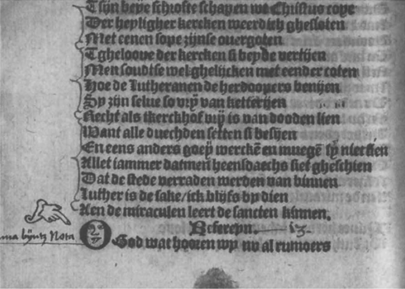 Tsijn beyde schrofte schapen we Christus cope
Der heyligher kercken weerdich ghesloten
Met eenen sope zijnse overgoten
Tgheloove der kercken si beyde vertijen
Men soudtse wel ghelijcken met eender coten
Hoe de Lutheranen de herdoopers benijen
Sy zijn selve so vrij van ketterijen
Recht als tkerckhof vrij is van dooden lien
Want alle duechden setten si besijen
En eens anders goey wercken en muegē sy niet sien
Allet iammer datmen heensdaechs siet gheschien
Dat de stede verraden werden van binnen
Luther is de sake/ick blijfs by dien
Aen de miraculen leert de sancten kinnen.
Refereyn. 13.
Nota
O God wat hooren wy nu al rumoers